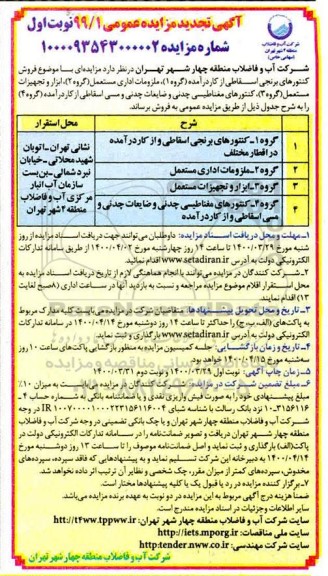 آگهی تجدید مزایده عمومی ۹۹/۱ نوبت اول
شماره مزایده ۱۰۰۰۰۹۳۵۴۳۰۰۰۰۰۲
شرکت آب و فاضلاب
منطقه ۴ شهر تهران
(سهامی خاص)
شرکت آب و فاضلاب منطقه چهار شهر تهران در نظر دارد مزایده‌ای با موضوع فروش
کنتورهای برنجی اسقاطی از کار درآمده (گروه ۱)، ملزومات اداری مستعمل (گروه ۲)، ابزار و تجهیزات
مستعمل (گروه ۳)، کنتورهای مغناطیسی چدنی و ضایعات چدنی و مسی اسقاطی از کار درآمده (گروه ۴)
را به شرح جدول ذیل از طریق مزایده عمومی به فروش برساند.
شرح
محل استقرار
۱ گروه ۱- کنتورهای برنجی اسقاطی و از کار درآمده در اقطار مختلف
۲ گروه ۲- ملزومات اداری مستعمل
۳ گروه ۳- ابزار و تجهیزات مستعمل
۴ گروه ۴- کنتورهای مغناطیسی چدنی و ضایعات چدنی و مسی اسقاطی و از کار درآمده
نشانی تهران- اتوبان
شهید محلاتی- خیابان
نبرد شمالی- بن‌بست
سازمان آب انبار
مرکزی آب و فاضلاب
منطقه ۴ شهر تهران
۱- مهلت و محل دریافت اسناد مزایده: داوطلبان می‌توانند جهت دریافت اسناد مزایده از روز
شنبه مورخ ۱۴۰۰/۰۳/۲۹ تا ساعت ۱۴ روز چهارشنبه مورخ ۱۴۰۰/۰۴/۰۲ از طریق سامانه تدارکات
الکترونیکی دولت به آدرس www.setadiran.ir اقدام نمایند.
۲- شرکت کنندگان در مزایده می‌توانند با انجام هماهنگی لازم از تاریخ دریافت اسناد مزایده به
محل استقرار اقلام موضوع مزایده مراجعه و نسبت به بازدید آنها در ساعات اداری (۸ صبح لغایت
۱۳) اقدام نمایند.
۳- تاریخ و محل تحویل پیشنهادها: متقاضیان شرکت در مزایده می‌بایست کلیه مدارک مربوط
به پاکت‌های (الف، ب، ج) را حداکثر تا ساعت ۱۴ روز دوشنبه مورخ ۱۴۰۰/۰۴/۱۴ در سامانه تدارکات
الکترونیکی دولت به آدرس www.setadiran.ir بارگذاری و ثبت نمایند.
۴- تاریخ و زمان بازگشایی: جلسه کمیسیون مزایده به منظور بازگشایی پاکت‌های ساعت ۱۰ روز
سه‌شنبه مورخ ۱۴۰۰/۰۴/۱۵ خواهد بود.
۵- زمان چاپ آگهی: نوبت اول ۱۴۰۰/۰۳/۲۸ و نوبت دوم ۱۴۰۰/۰۳/۳۱
۶- مبلغ تضمین شرکت در مزایده: شرکت کنندگان در مزایده می‌بایست به میزان ۱۰٪
مبلغ پیشنهادی خود را به صورت فیش واریزی نقدی و یا ضمانتنامه بانکی به شماره حساب
نزد بانک رسالت با شناسه شبای
شرکت آب و فاضلاب منطقه چهار شهر تهران و یا چک بانکی تضمینی در وجه شرکت آب و فاضلاب
منطقه چهار شهر تهران دریافت و تصویر ضمانتنامه را در سامانه تدارکات الکترونیکی دولت در
پاکت (الف) بارگذاری و ثبت نماید و اصل ضمانتنامه موصوف را تا ساعت ۱۳ روز دوشنبه مورخ
۱۴۰۰/۰۴/۱۴ به دبیرخانه این شرکت تسلیم نماید و به پیشنهادهایی که فاقد سپرده، سپرده‌های
مخدوش، سپرده‌های کمتر از میزان مقرر، چک شخصی و نظایر آن ترتیب اثر داده نخواهد شد.
۷- برگزار کننده مزایده در رد یا قبول یک یا کلیه پیشنهادها مختار است.
ضمنا هزینه درج آگهی مربوط به این مزایده در دو نوبت به عهده برنده مزایده می‌باشد.
سایر اطلاعات و جزئیات در اسناد مزایده مندرج است.
سایت شرکت آب و فاضلاب منطقه چهار شهر تهران: htt://t4ww.tppww.ir
سایت ملی مناقصات: http://iets.mporg.ir
سایت شرکت مهندسی: http:tender.nww.co.ir
شرکت آب و فاضلاب منطقه چهار شهر تهران